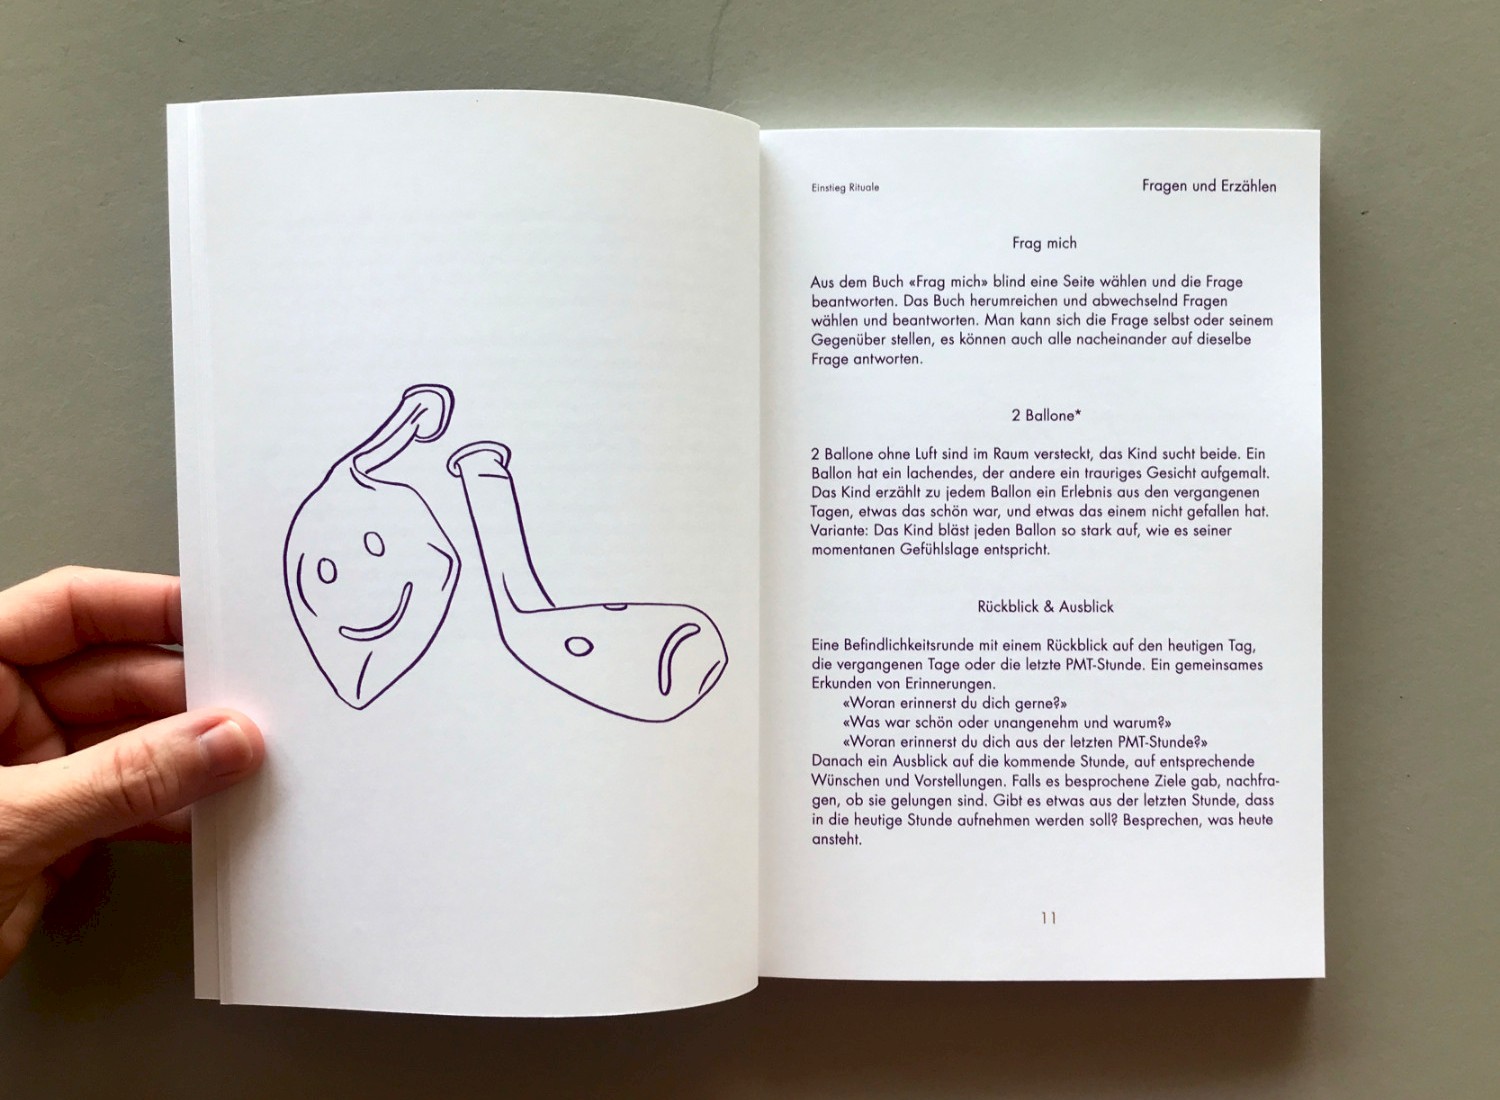 Einstieg Rituale
Fragen und Erzählen
Frag mich
Aus dem Buch «Frag mich» blind eine Seite wählen und die Frage
beantworten. Das Buch herumreichen und abwechselnd Fragen
wählen und beantworten. Man kann sich die Frage selbst oder seinem
Gegenüber stellen, es können auch alle nacheinander auf dieselbe
Frage antworten.
2 Ballone*
2 Ballone ohne Luft sind im Raum versteckt, das Kind sucht beide. Ein
Ballon hat ein lachendes, der andere ein trauriges Gesicht aufgemalt.
Das Kind erzählt zu jedem Ballon ein Erlebnis aus den vergangenen
Tagen, etwas das schön war, und etwas das einem nicht gefallen hat.
Variante: Das Kind bläst jeden Ballon so stark auf, wie es seiner
momentanen Gefühlslage entspricht.
Rückblick & Ausblick
Eine Befindlichkeitsrunde mit einem Rückblick auf den heutigen Tag,
die vergangenen Tage oder die letzte PMT-Stunde. Ein gemeinsames
Erkunden von Erinnerungen.
«Woran erinnerst du dich gerne?»
«Was war schön oder unangenehm und warum?»
«Woran erinnerst du dich aus der letzten PMT-Stunde?»
Danach ein Ausblick auf die kommende Stunde, auf entsprechende
Wünschen und Vorstellungen. Falls es besprochene Ziele gab, nachfra-
gen, ob sie gelungen sind. Gibt es etwas aus der letzten Stunde, dass
in die heutige Stunde aufnehmen werden soll? Besprechen, was heute
ansteht.
11